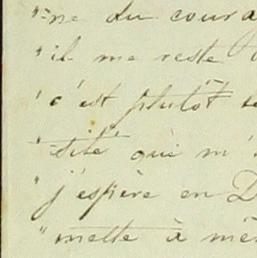 "-ne du coura
" il me reste
" c'est plutôt
" -sité qui m'
" j'espère en D
" mette à mê